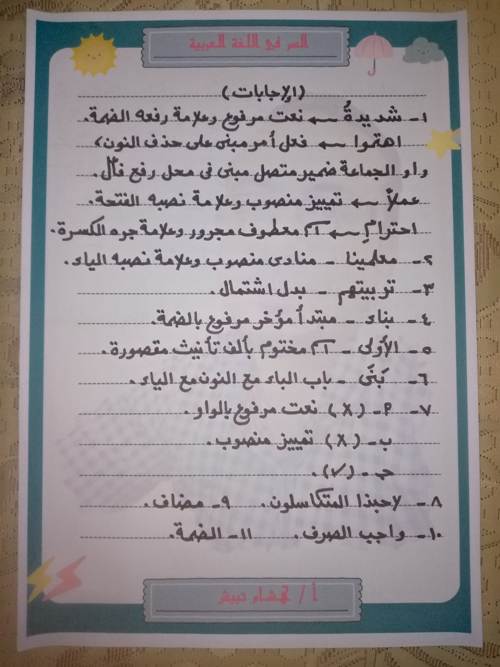 السر في اللغة العربية
(الإجابات)
١- شديدةُ ← نعت مرفوع وعلامة رفعه الضمة.
اهتموا ← فعل أمر مبنى على حذف النون،
واو الجماعة ضمير متصل مبنى فى محل رفع فاعل.
عملاً ← تمييز منصوب وعلامة نصبه الفتحة.
احترامِ ← اسم معطوف مجرور وعلامة جره الكسرة.
٢- معلمينا - منادى منصوب وعلامة نصبه الياء.
٣- تربيتهم - بدل اشتمال.
٤- بناء - مبتدأ مؤخر مرفوع بالضمة.
٥- الأولى - اسم مختوم بألف تأنيث مقصورة.
٦- بَنَى - باب الباء مع النون مع الياء.
٧- ٩- (X) نعت مرفوع بالواو.
ب- (X) تمييز منصوب.
جـ - (✓).
٨- لاحبذا المتكاسلون. ٩- مضاف.
١٠- واجب الصرف. ١١- الضمة.
أ / هشام